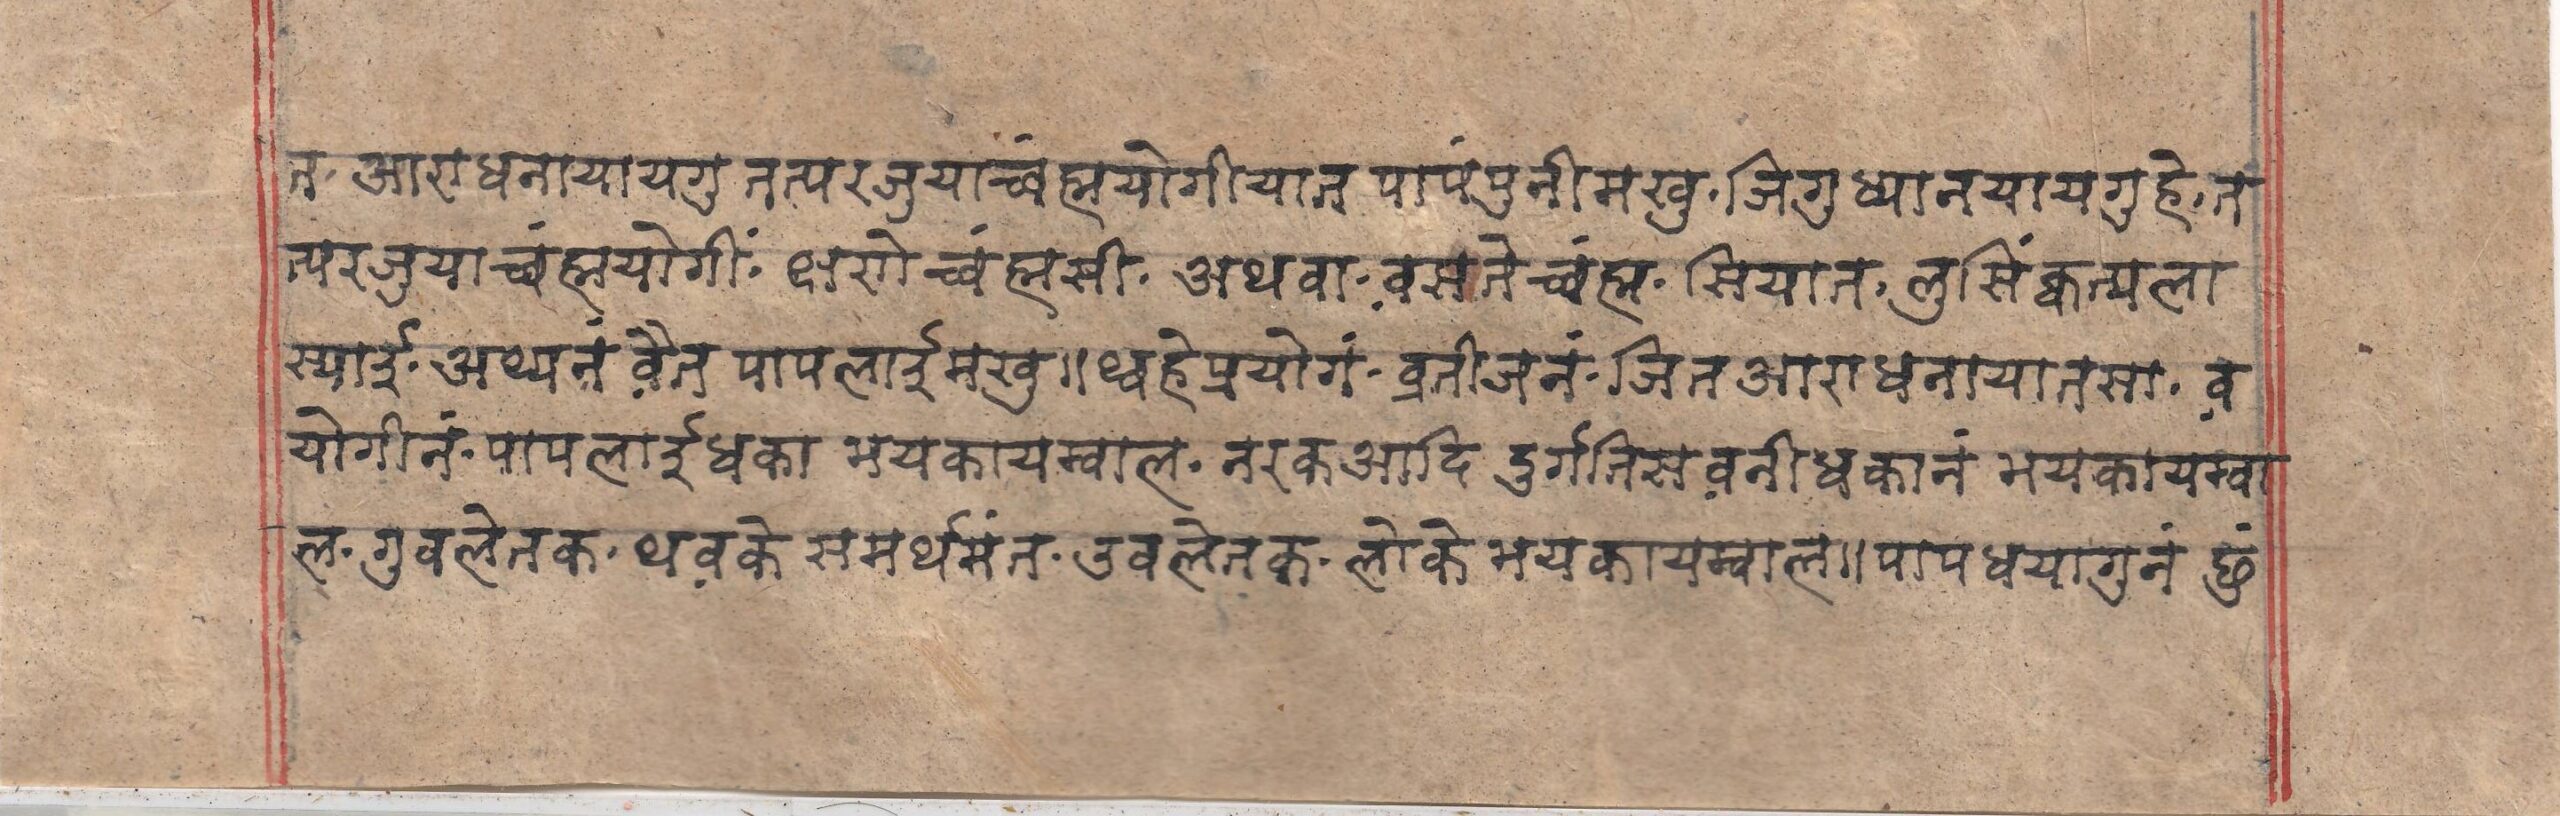 त· आराधनायायगु तत्परजुयाच्वंह्मयोगीयात पापंपुनीमखु· जिगुध्यानयायगुहे· त
त्परजुयाच्वंह्मयोगीं· क्षरगोच्वंह्मसी· अथवा· व़सतेच्वंह्म· सियात· लुसिंकन्पला
स्यार्इ· अथ्यनं व़ैत पापलार्इमखु॥ थ्वहेप्रयोगं· व्रतीजनं· जितआराधनायातसा· व़
योगीनं· पापलार्इधका भयकायम्वाल· नरकआदि दुर्गतिसव़नीधकानं भयकायम्वा
ल· गुवलेतक· थव़के समर्थमंत· उवलेतक· लोके भयकायम्वाल॥ पापधयागुनं छुं